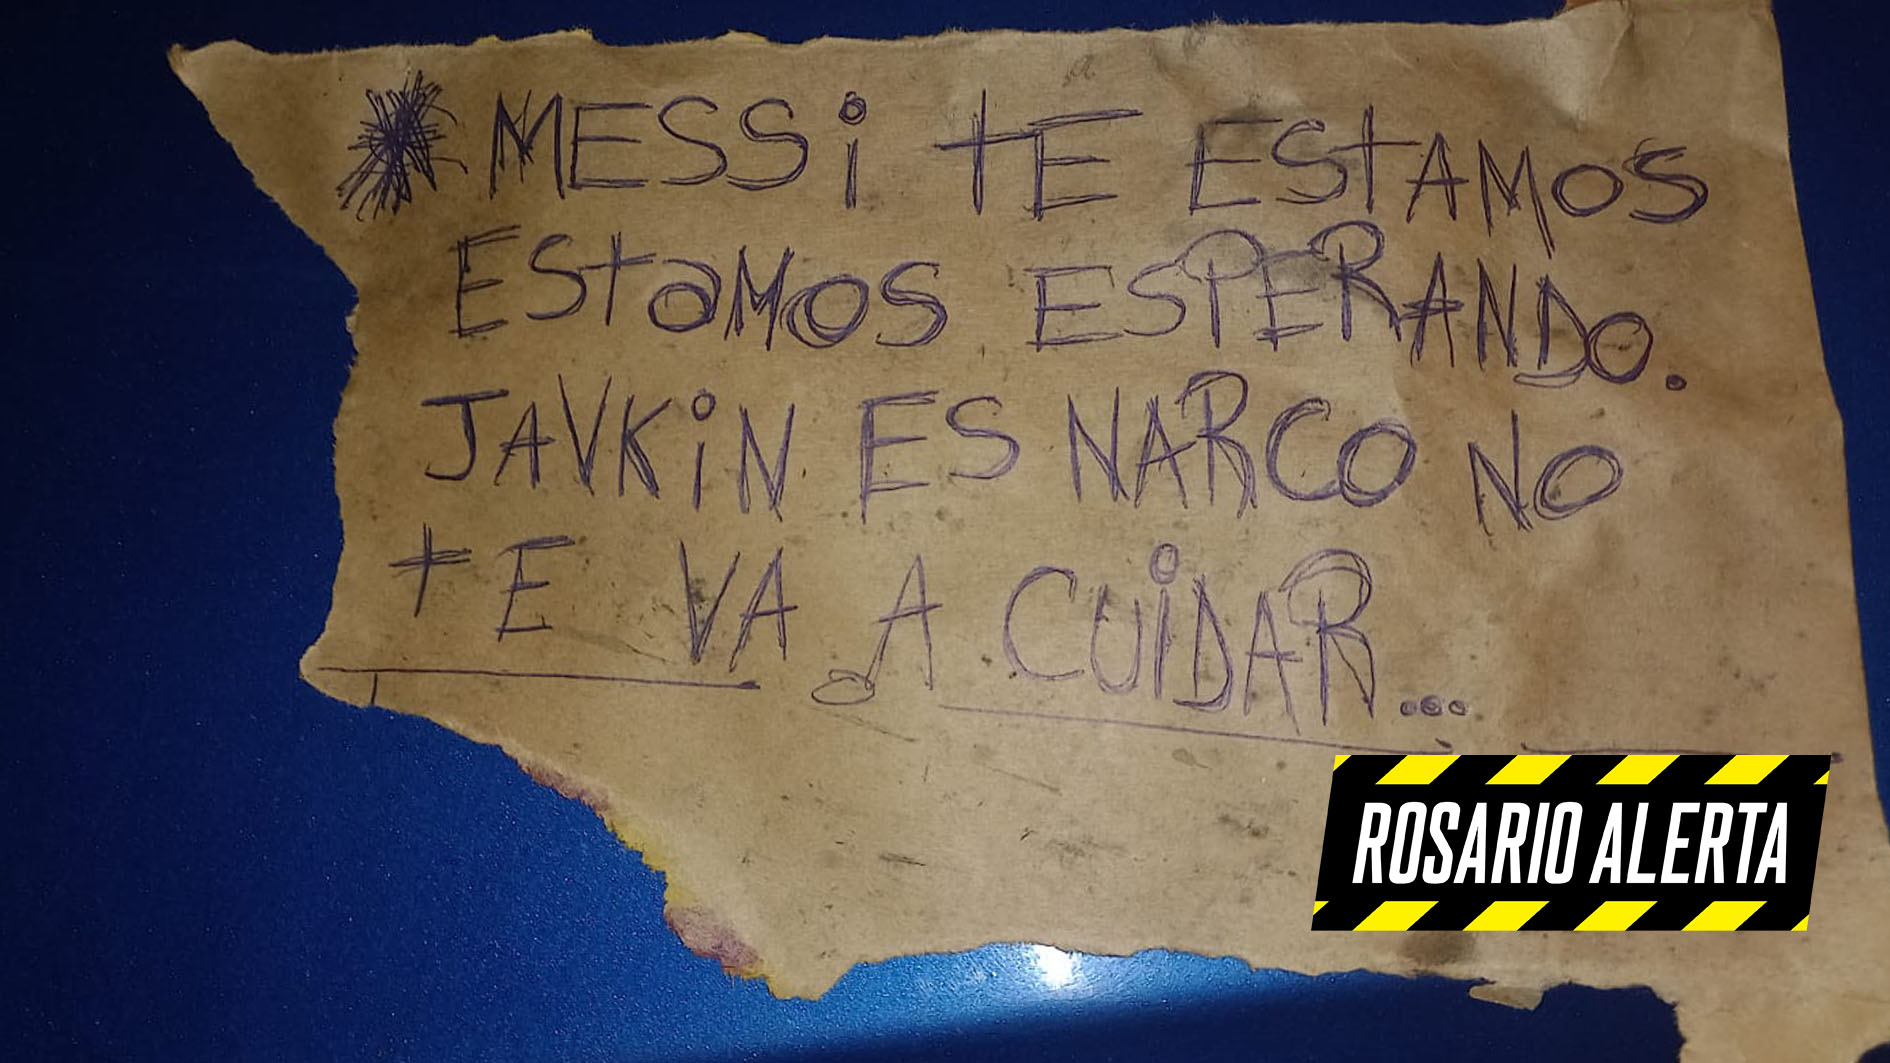 MESSi tE EStAMOS
EStaMOS ESPERANDO.
JAVKiN ES NARCO NO
tE VA A CUiDAR...
ROSARIO ALERTA